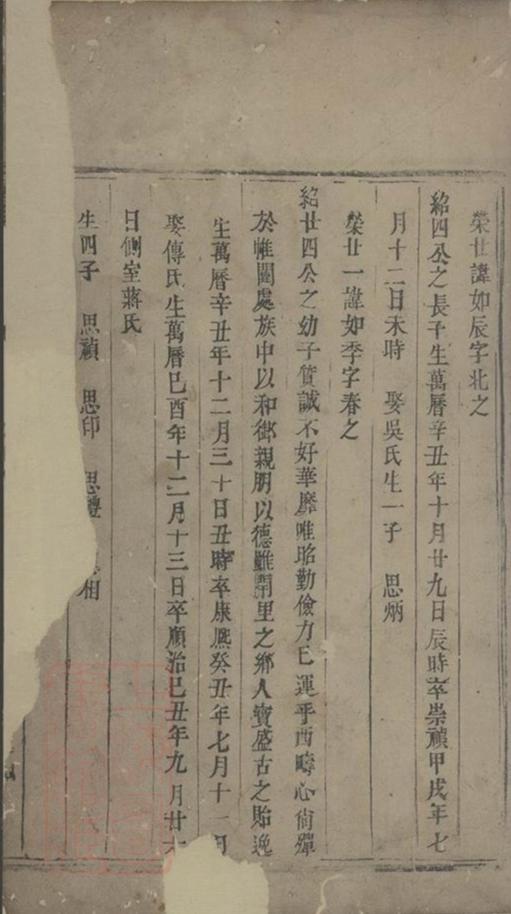 榮廿諱如辰字北之
紹四公之長子生萬曆辛丑年十月廿九日辰時卒崇禎甲戌年七
月十二日未時 娶吳氏生一子 思炳
榮廿一諱如季字春之
紹廿四公之幼子質誠不好華靡唯昭勤儉力已運乎西疇心尚殫
於帷闥處族中以和御親朋以德雖閈里之鄉人寶盛古之貽逸
生萬曆辛丑年十二月三十日丑時卒康熙癸丑年七月十一日
娶傅氏生萬曆己酉年十二月十三日卒順治己丑年九月廿七
日側室蔣氏
生四子 思禎 思印 思禮 相